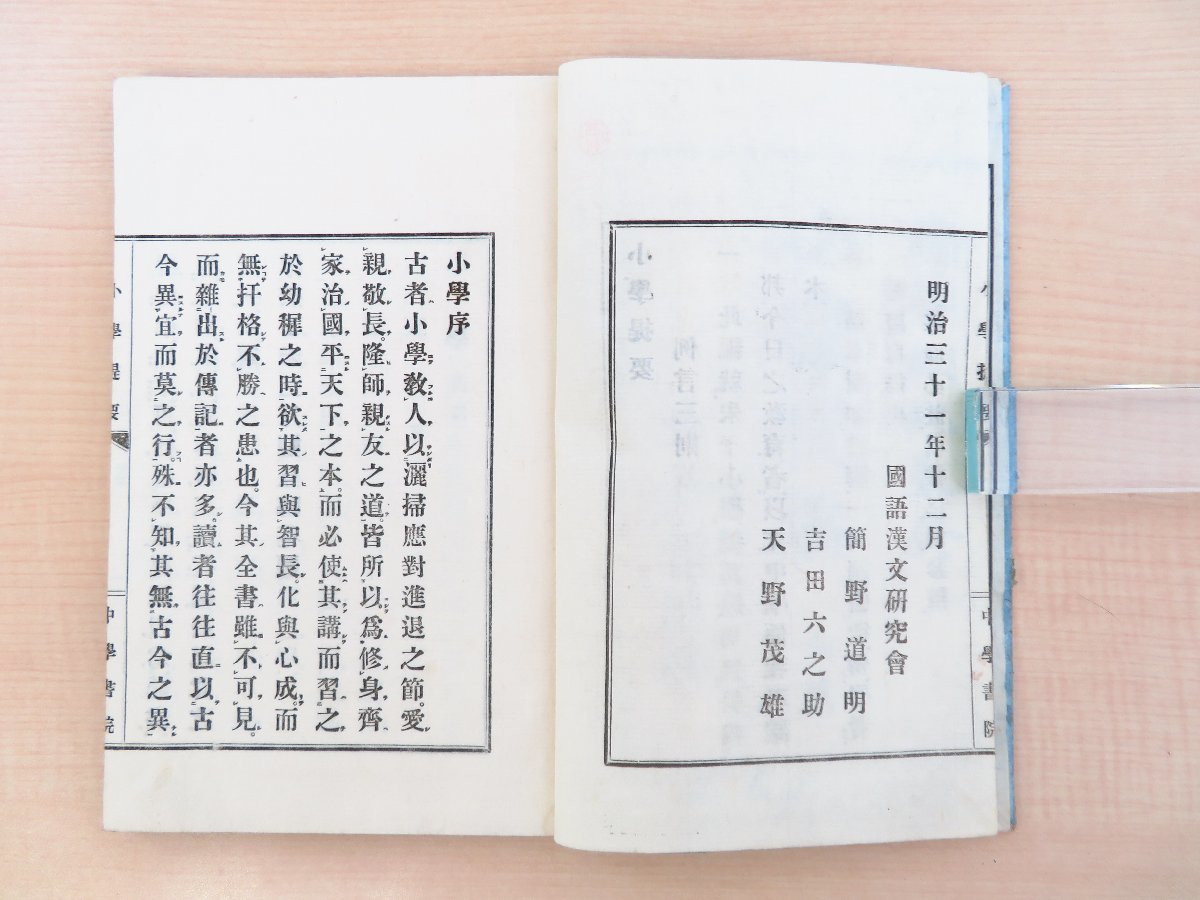 明治三十一年十二月
國語漢文研究會
簡野道明
吉田六之助
天野茂雄
小學序
古者小學敎人以灑掃應對進退之節。愛
親敬長。隆師親友之道。皆所以爲修身齊
家治國平天下之本。而必使其講而習之
於幼穉之時。欲其習與智長。化與心成。而
無扞格不勝之患也。今其全書雖不可見。
而雜出於傳記者亦多。讀者往往直以古
今異宜而莫之行。殊不知其無古今之異
小學提要
中學書院